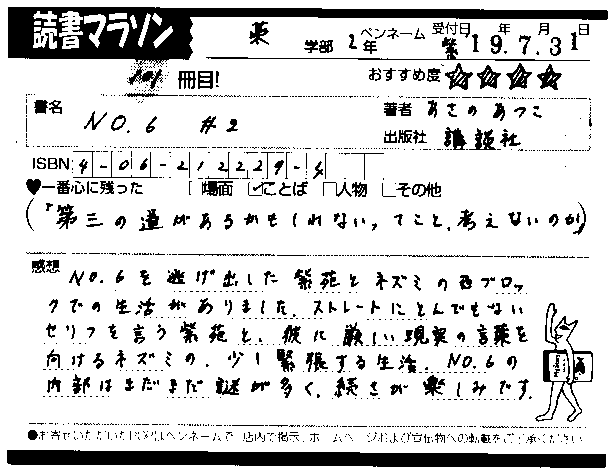 読書マラソン
薬 学部 2年 ペンネーム 紫 受付日 19年7月31日
101冊目! おすすめ度 ☆☆☆☆
書名 NO.6 #2
著者 あさのあつこ
出版社 講談社
ISBN 4-06-212229-4
♥一番心に残った □場面 ☑ことば □人物 □その他
(『第三の道があるかもしれないってこと、考えないのか』)
感想 NO.6を逃げ出した紫苑とネズミの西ブロッ
クでの生活がありました。ストレートにとんでもない
セリフを言う紫苑と、彼に厳しい現実の言葉を
向けるネズミの、少し緊張する生活。NO.6の
内部はまだまだ謎が多く、続きが楽しみです。
●お寄せいただいたPOPはペンネームで、店内で掲示、ホームページおよび宣伝物への転載をご了承ください